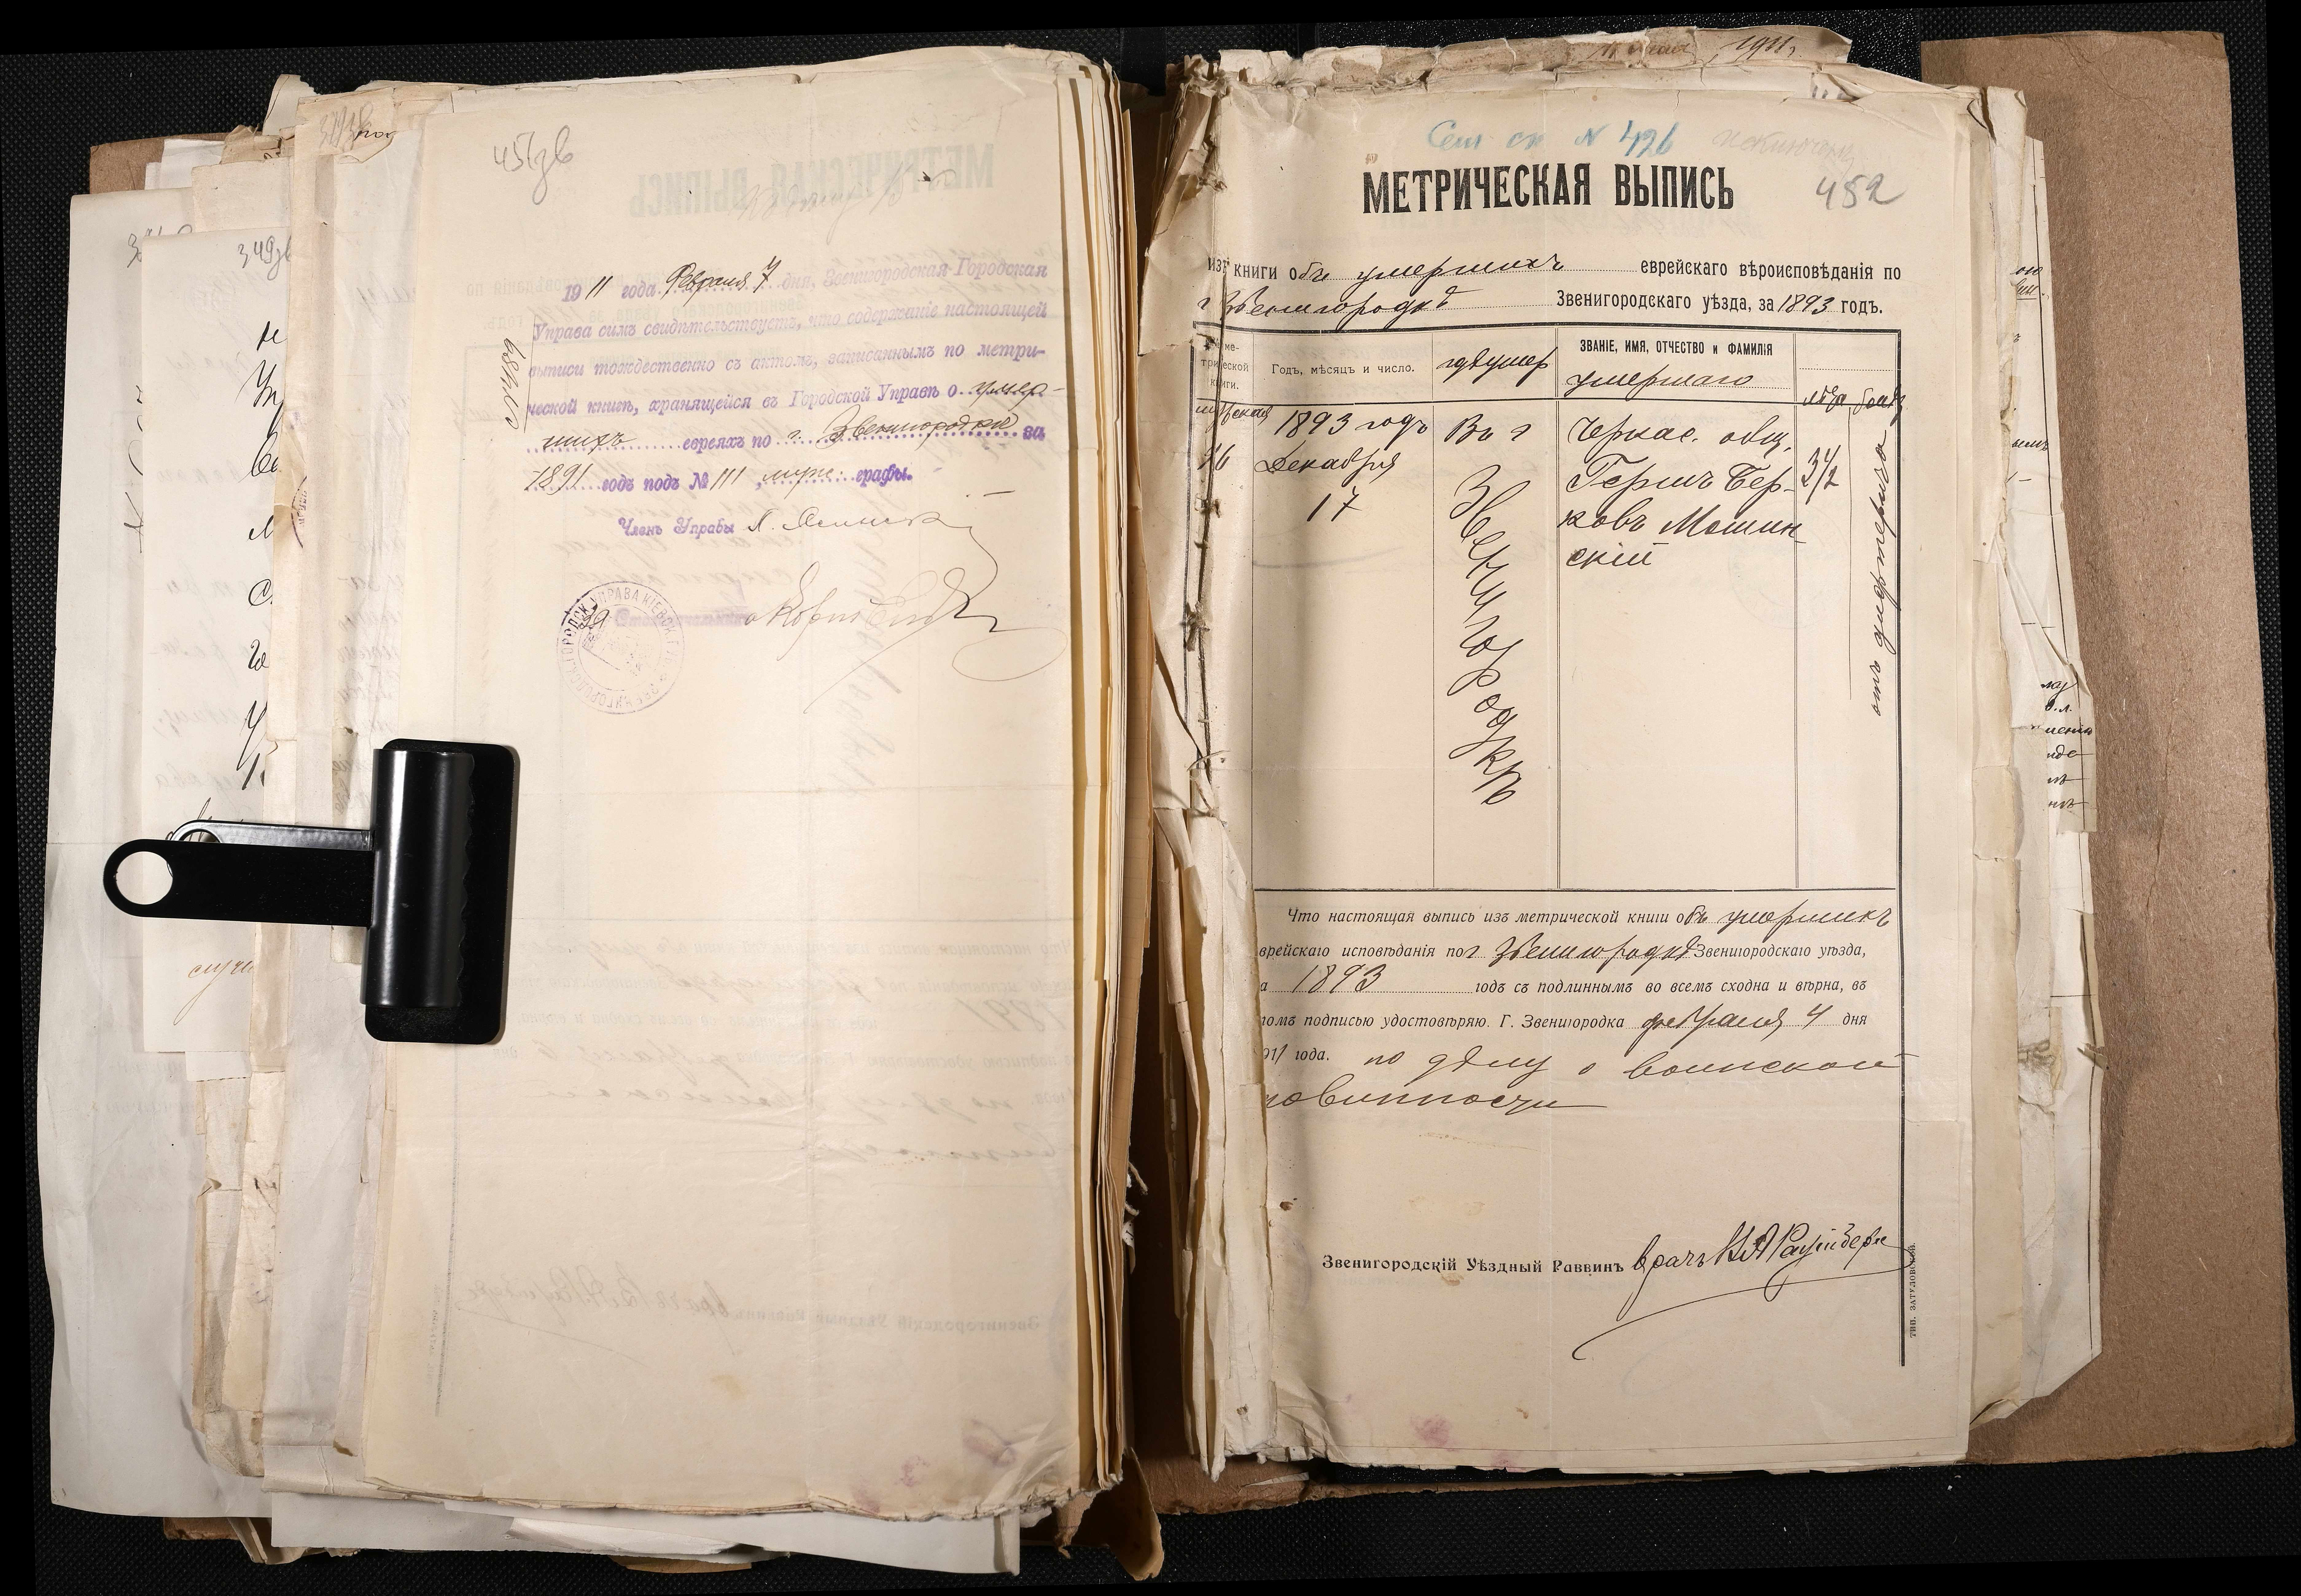 451зв
1911 года Февраля 7 дня, Звенигородская Городская
Управа симъ свидѣтельствуетъ, что содержаніе настоящей
выписи тождественно съ актомъ, записаннымъ по метри-
ческой книгѣ, хранящейся въ Городской Управѣ о умер-
шихъ евреяхъ по г. Звенигородкѣ за
1891 годъ подъ № 111, муж. графы.
Членъ Управы
349зв
1911 г.
Сем. сп. N 426
452
МЕТРИЧЕСКАЯ ВЫПИСЬ
изъ книги объ умершихъ еврейскаго вѣроисповѣданія по
г Звенигородкѣ Звенигородскаго уѣзда, за 1893 годъ.
Годъ, мѣсяцъ и число.
гдѣ умер
ЗВАНІЕ, ИМЯ, ОТЧЕСТВО и ФАМИЛІЯ
умершаго
лѣта
мужская
1893 годъ
Декабря
17
Въ г
Звенигородкѣ
Черкас. общ.
Гершъ Бер-
ковъ Мошин-
скій
3 1/2
отъ дифтерита
Что настоящая выпись изъ метрической книги объ умершихъ
врейскаго исповѣданія по г Звенигородкѣ Звенигородскаго уѣзда,
а 1893 годъ съ подлиннымъ во всемъ сходна и вѣрна, въ
томъ подписью удостовѣряю. Г. Звенигородка февраля 4 дня
911 года. по дѣлу о воинской
повинности
Звенигородскій Уѣздный Раввинъ врачъ
ТИП. ЗАТУЛОВСКОЙ.